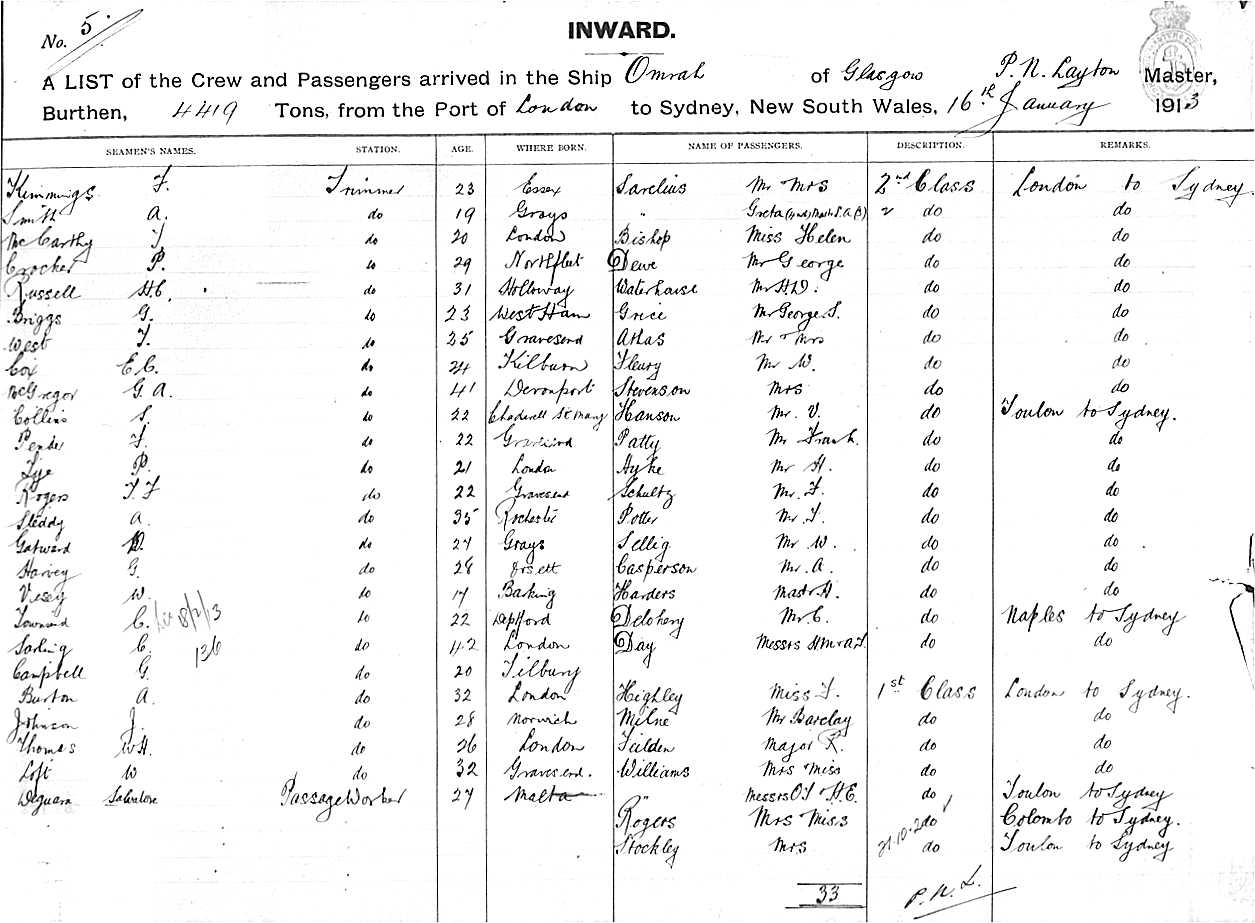 No. 5
INWARD.
A LIST of the Crew and Passengers arrived in the Ship Omrah of Glasgow P. N. Layton Master,
Burthen, 4419 Tons, from the Port of London to Sydney, New South Wales, 16th January 1913
SEAMEN'S NAMES. STATION. AGE. WHERE BORN. NAME OF PASSENGERS. DESCRIPTION. REMARKS.
Kemmings F. Trimmer 23 Essex Sarelius Mr Mrs 2nd Class London to Sydney.
Smith A. do 19 Grays " Greta do do
McCarthy T. do 20 London Bishop Miss Helen do do
Crocker P. do 29 Northfleet Dewe Mr George do do
Russell H.C. do 31 Holloway Waterhouse Mr H.D. do do
Briggs G. do 23 West Ham Grice Mr George S. do do
West F. do 25 Gravesend Athas Mr & Mrs do do
Cox E C. do 24 Kilburn Fleury Mr W. do do
McGregor G. A. do 41 Devonport Stevenson Mrs do do
Collins S. do 22 Chadwell St Mary Hanson Mr. V. do Toulon to Sydney.
Pender F. do 22 Gravesend Patty Mr Frank. do do
Lye P. do 21 London Hyke Mr H. do do
Rogers T F do 22 Gravesend Schultz Mr. F. do do
Steddy A. do 35 Rochester Potter Mr. T. do do
Gatward W. do 27 Grays Sellig Mr W. do do
Harvey G. do 28 Orsett Casperson Mr. A. do do
Vesey W. do 17 Barking Harders Mastr H. do do
Townsend C. 18/2/13 do 22 Deptford Delohery Mr C. do Naples to Sydney
Sarling C. 136 do 42 London Day Messrs H M & A.F. do do
Campbell G. do 20 Tilbury
Burton A. do 32 London Highley Miss F. 1st Class London to Sydney.
Johnson J. do 28 Norwich Milne Mr Barclay do do
Thomas W H. do 26 London Fielden Major R. do do
Loft W do 32 Gravesend. Williams Mrs Miss do do
Deguara Salvatore Passage Worker 27 Malta " Messrs O J & H.E. do Toulon to Sydney
Rogers Mrs Miss do Colombo to Sydney.
Stockley Mrs do Toulon to Sydney
33 P. N. L.